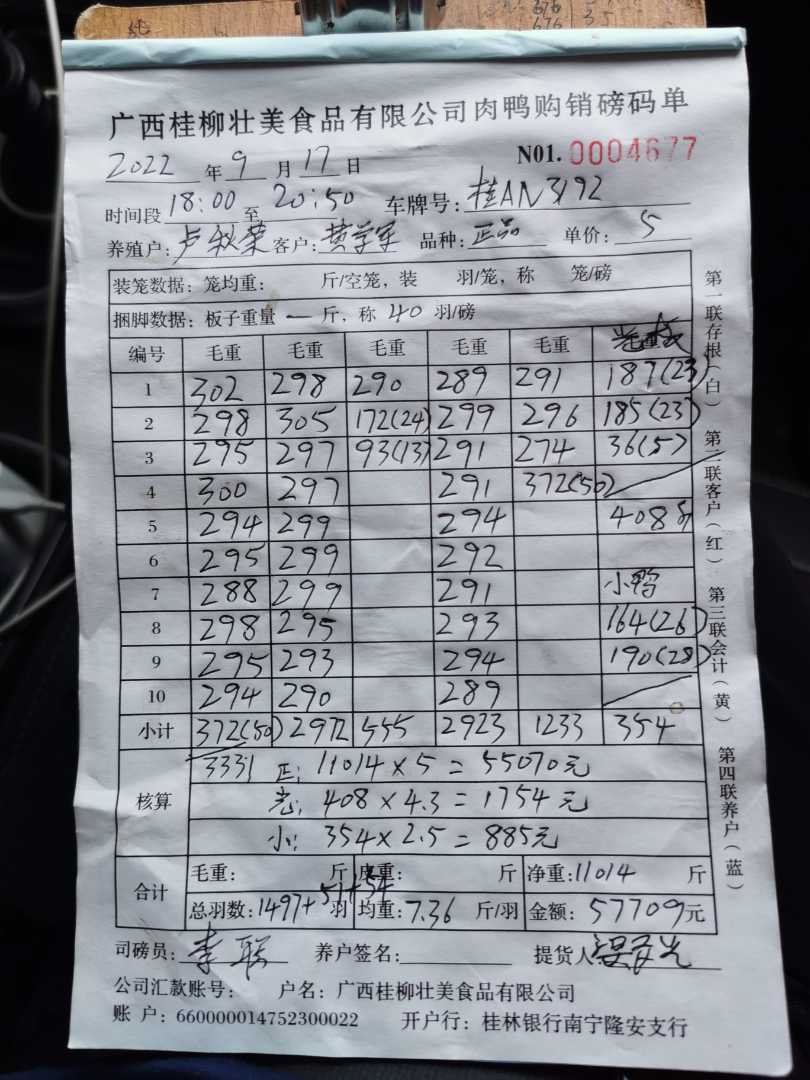 广西桂柳壮美食品有限公司肉鸭购销磅码单
2022 年 9 月 17 日 N01. 0004677
时间段 18:00 至 20:50 车牌号: 桂AN3192
养殖户: 卢秋荣 客户: 黄学军 品种: 正品 单价: 5
装笼数据: 笼均重: 斤/空笼, 装 羽/笼, 称 笼/磅
捆脚数据: 板子重量 — 斤, 称 40 羽/磅
编号 毛重 毛重 毛重 毛重 毛重
1 302 298 290 289 291 187(23)
2 298 305 172(24) 299 296 185(23)
3 295 297 93(13) 291 274 36(5)
4 300 297 291 372(50)
5 294 299 294 408斤
6 295 299 292
7 288 299 291 小鸭
8 298 295 293 164(26)
9 295 293 294 190(28)
10 294 290 289
小计 372(50) 2972 555 2923 1233 354
3331 正: 11014×5=55070元
核算 : 408×4.3=1754元
小: 354×2.5=885元
合计 毛重: 斤 皮重: 斤 净重: 11014 斤
总羽数: 1497+51+54 羽 均重: 7.36 斤/羽 金额: 57709元
司磅员: 李联 养户签名: 提货人
公司汇款账号: 户名: 广西桂柳壮美食品有限公司
账 户: 660000014752300022 开户行: 桂林银行南宁隆安支行
第一联存根(白)
第二联客户(红)
第三联会计(黄)
第四联养户(蓝)